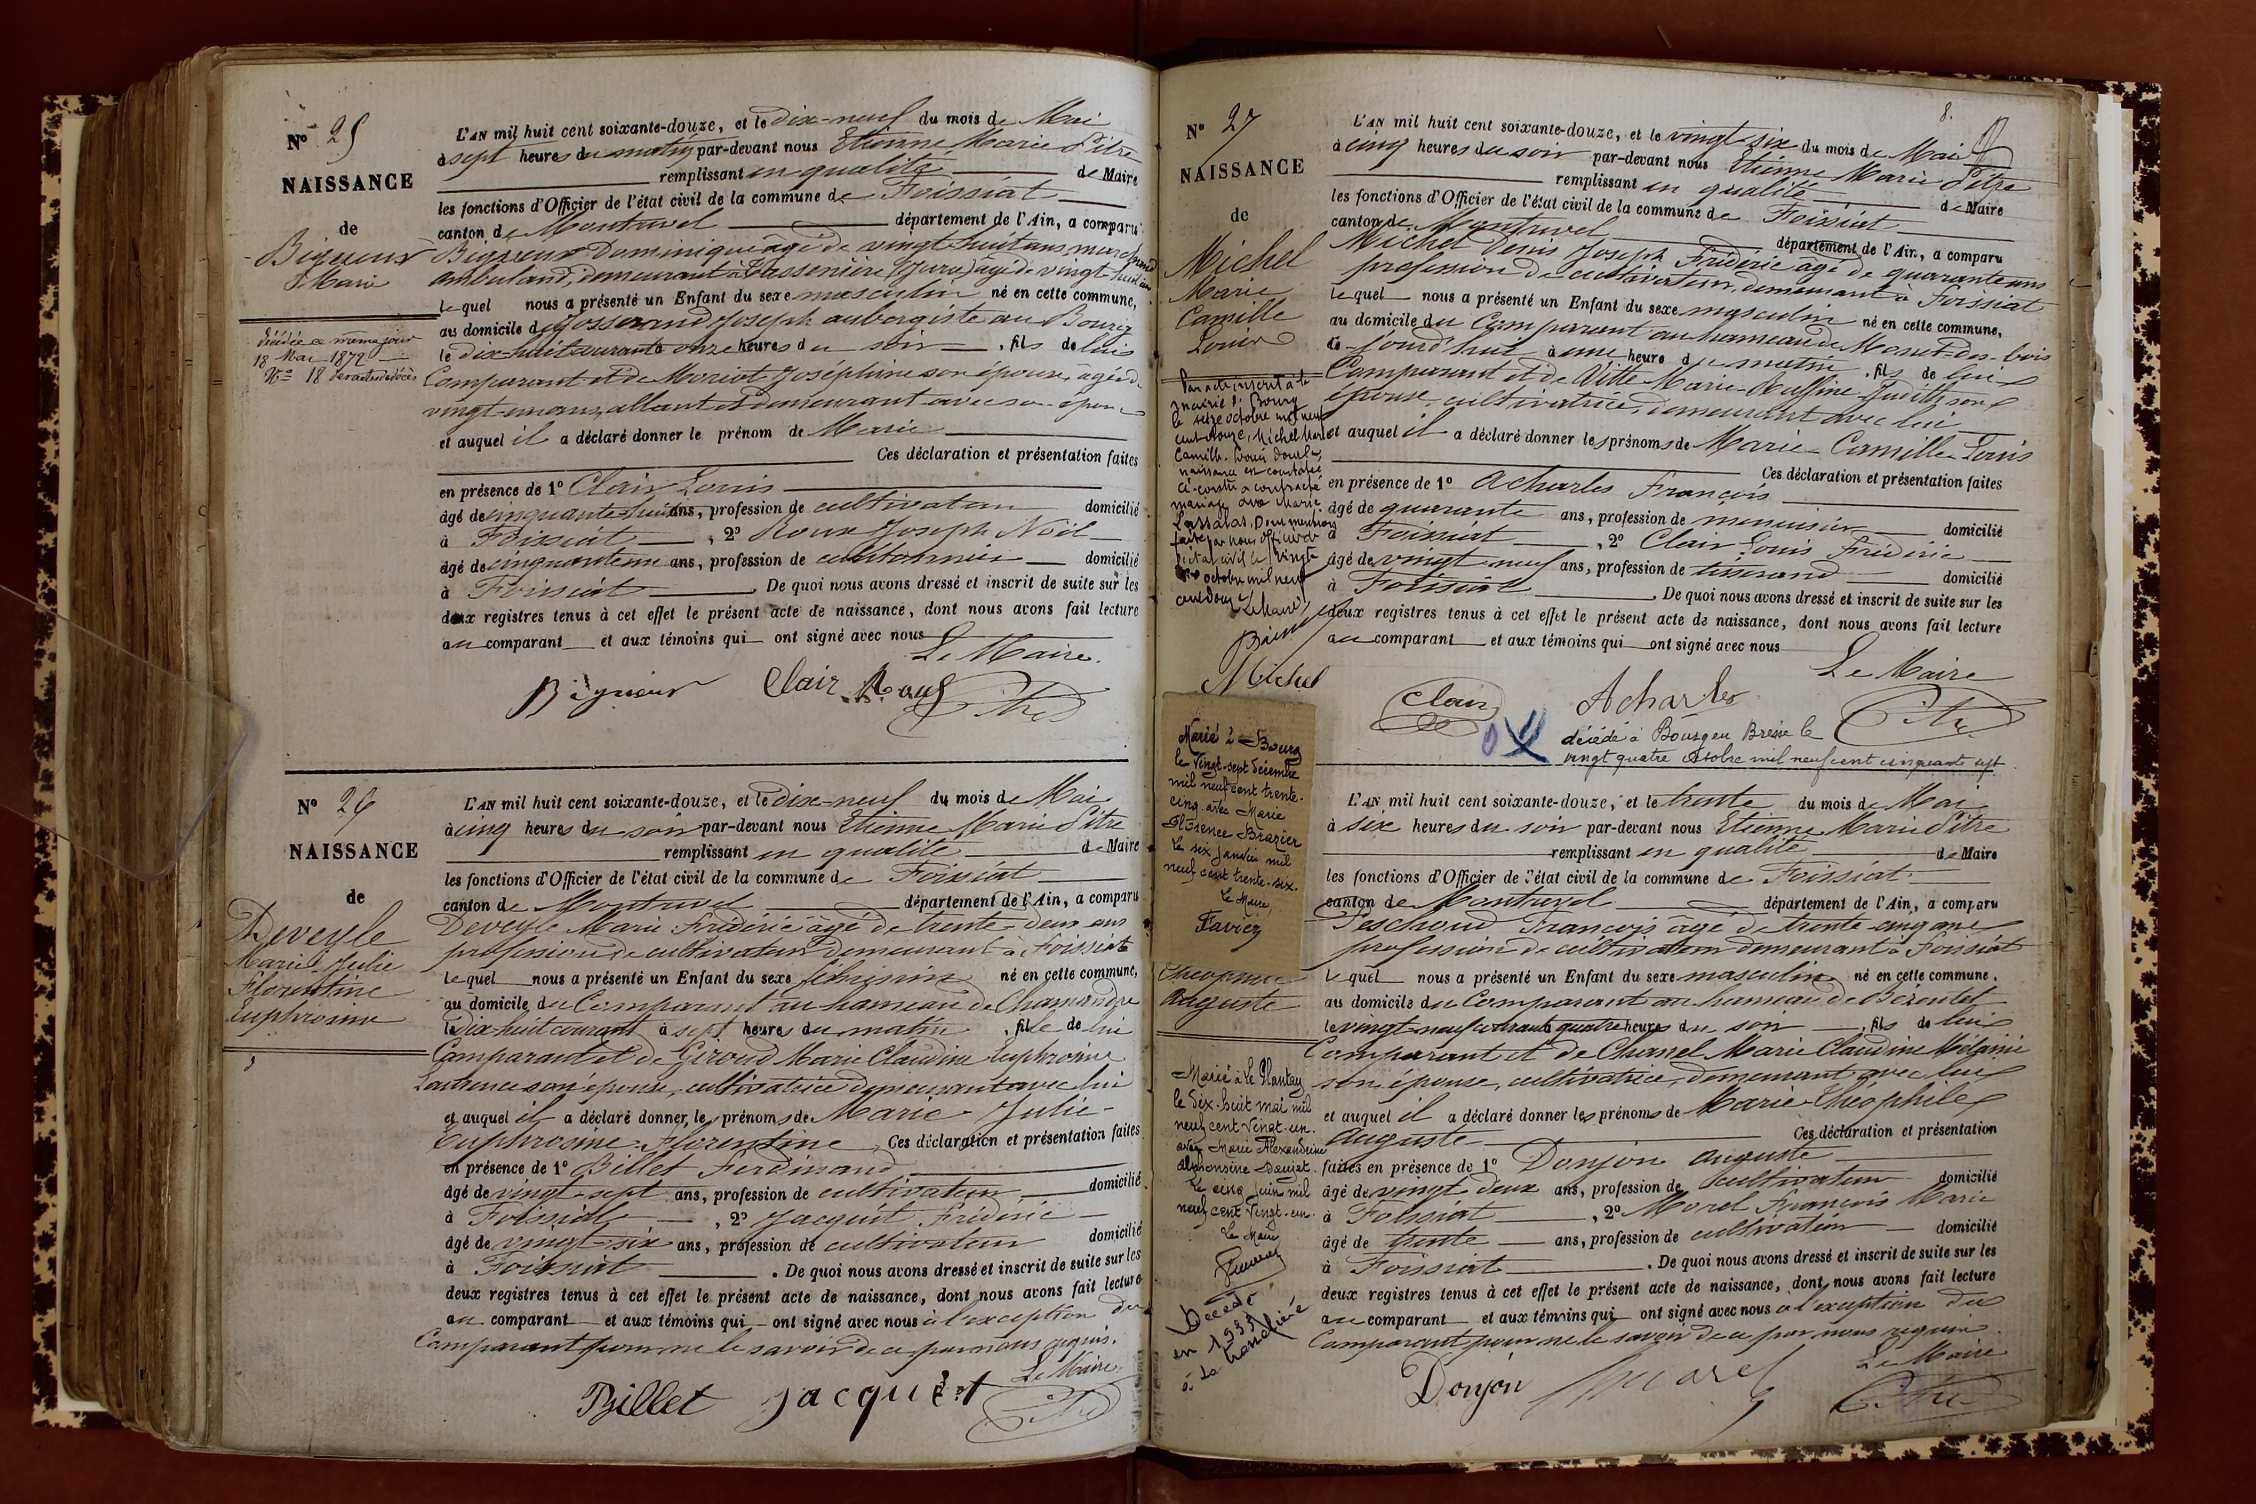 N° 25
NAISSANCE
de
Bigueur
Marie
Décédée ce même jour
18 Mai 1872
N° 18 des actes de décès
L'AN mil huit cent soixante-douze, et le dix-neuf du mois de Mai
à sept heures du matin par-devant nous Etienne Marie Pitre
remplissant en qualité de Maire
les fonctions d'Officier de l'état civil de la commune de Foissiat
canton de Montrevel département de l'Ain, a comparu
Dominique âgé de vingt-huit ans, marchand
ambulant, demeurant à (Jura) âgé de vingt-huit ans
lequel nous a présenté un Enfant du sexe masculin né en cette commune,
au domicile de Josserand Joseph aubergiste au Bourg
le dix-huit courant à onze heures du soir, fils de lui
Comparant et de Joséphine son épouse, âgée de
vingt-un ans, allant et demeurant avec son époux
et auquel il a déclaré donner le prénom de Marie
Ces déclaration et présentation faites
en présence de 1° Clair Louis
âgé de cinquante-huit ans, profession de cultivateur domicilié
à Foissiat, 2° Roux Joseph Noël
âgé de ans, profession de cantonnier domicilié
à Foissiat. De quoi nous avons dressé et inscrit de suite sur les
deux registres tenus à cet effet le présent acte de naissance, dont nous avons fait lecture
au comparant et aux témoins qui ont signé avec nous
Le Maire.
Bigueur Clair Roux Pitre
N° 26
NAISSANCE
de
Deveyle
Marie Julie
Florentine
Euphrosine
L'AN mil huit cent soixante-douze, et le dix-neuf du mois de Mai
à cinq heures du soir par-devant nous Etienne Marie Pitre
remplissant en qualité de Maire
les fonctions d'Officier de l'état civil de la commune de Foissiat
canton de Montrevel département de l'Ain, a comparu
Deveyle Marie Frédéric âgé de trente-deux ans
profession de cultivateur demeurant à Foissiat
lequel nous a présenté un Enfant du sexe féminin né en cette commune,
au domicile du Comparant au hameau de Chamandre
le dix-huit courant à sept heures du matin, fille de lui
Comparant et de Giroud Marie Claudine Euphrosine
Laurence son épouse, cultivatrice demeurant avec lui
et auquel il a déclaré donner les prénoms de Marie-Julie-
Euphrosine-Florentine Ces déclaration et présentation faites
en présence de 1° Billet Ferdinand
âgé de vingt-sept ans, profession de cultivateur domicilié
à Foissiat, 2° Jacquet Frédéric
âgé de vingt-six ans, profession de cultivateur domicilié
à Foissiat. De quoi nous avons dressé et inscrit de suite sur les
deux registres tenus à cet effet le présent acte de naissance, dont nous avons fait lecture
au comparant et aux témoins qui ont signé avec nous à l'exception du
Comparant pour ne le savoir de ce par nous requis.
Le Maire
Billet Jacquet Pitre
8.
N° 27
NAISSANCE
de
Michel
Marie
Camille
Louis
Par acte inscrit à la
mairie de Bourg
le seize octobre mil neuf
cent douze, Michel Marie
Camille Louis dont la
naissance est constatée
ci-contre a contracté
mariage avec Marie
Lassalas. Dont mention
faite par nous officier de
l'état civil le vingt
octobre mil neuf
cent douze
Le Maire
L'AN mil huit cent soixante-douze, et le vingt-six du mois de Mai
à cinq heures du soir par-devant nous Etienne Marie Pitre
remplissant en qualité de Maire
les fonctions d'Officier de l'état civil de la commune de Foissiat
canton de Montrevel département de l'Ain, a comparu
Michel Denis Joseph Frédéric âgé de quarante ans
profession de cultivateur, demeurant à Foissiat
lequel nous a présenté un Enfant du sexe masculin né en cette commune,
au domicile du Comparant au hameau de
ce-jourd'hui à une heure du matin, fils de lui
Comparant et de Vitte Marie Judith son
épouse, cultivatrice, demeurant avec lui
et auquel il a déclaré donner les prénoms de Marie-Camille-Louis
Ces déclaration et présentation faites
en présence de 1° Acharles François
âgé de quarante ans, profession de menuisier domicilié
à Foissiat, 2° Clair Louis Frédéric
âgé de vingt-neuf ans, profession de tisserand domicilié
à Foissiat. De quoi nous avons dressé et inscrit de suite sur les
deux registres tenus à cet effet le présent acte de naissance, dont nous avons fait lecture
au comparant et aux témoins qui ont signé avec nous
Le Maire
Michel Clair Acharles Pitre
décédé à Bourg en Bresse le
vingt quatre octobre mil neuf cent cinquante sept
Marié à Bourg
le vingt-sept décembre
mil neuf cent trente-
cinq avec Marie
Florence Brazier
le six janvier mil
neuf cent trente-six.
Le Maire,
Favier
Théophile
Auguste
Marié à Le Plantay
le dix-huit mai mil
neuf cent vingt-un.
avec Marie Alexandrine
Alphonsine Daujat.
Le cinq juin mil
neuf cent vingt-un.
Le Maire
Décédé
en 1939
à La Tranclière
L'AN mil huit cent soixante-douze, et le trente du mois de Mai
à six heures du soir par-devant nous Etienne Marie Pitre
remplissant en qualité de Maire
les fonctions d'Officier de l'état civil de la commune de Foissiat
canton de Montrevel département de l'Ain, a comparu
Peschoud François âgé de trente-cinq ans
profession de cultivateur demeurant à Foissiat
lequel nous a présenté un Enfant du sexe masculin né en cette commune.
au domicile du Comparant au hameau de
le vingt-neuf courant à quatre heures du soir, fils de lui
Comparant et de Chanel Marie Claudine Mélanie
son épouse, cultivatrice, demeurant avec lui
et auquel il a déclaré donner les prénoms de Marie-Théophile
Auguste Ces déclaration et présentation
faites en présence de 1° Donjon Auguste
âgé de vingt-deux ans, profession de cultivateur domicilié
à Foissiat, 2° Morel François Marie
âgé de trente ans, profession de cultivateur domicilié
à Foissiat. De quoi nous avons dressé et inscrit de suite sur les
deux registres tenus à cet effet le présent acte de naissance, dont nous avons fait lecture
au comparant et aux témoins qui ont signé avec nous à l'exception du
Comparant pour ne le savoir de ce par nous requis
Le Maire
Donjon Morel Pitre